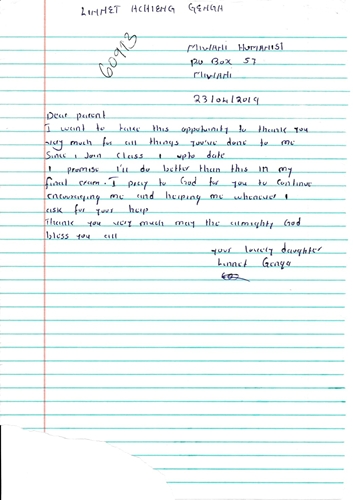 LINNET ACHIENG GENGA
60913
MIWANI HUMANIST
PO BOX 53
MIWANI
23/04/2019
Dear parent
I want to take this oppotunity to thank you
very much for all things you've done to me
Since i Join Class 1 upto date
I promise I'll do better than this in my
final exam. I pray to God for you to continue
encouraging me and helping me whenever i
ask for your help
Thank you very much may the almighty God
bless you all
your lovely daughter
Linnet Genga